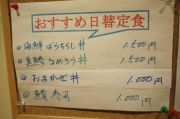 おすすめ日替定食
◎海鮮ばらちらし丼 1.500円
◎真鯛うめろう丼 1.500円
◎およかぜ丼 1.000円
◎鯖寿司 1.000円